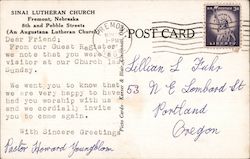 SINAI LUTHERAN CHURCH
Fremont, Nebraska
8th and Pebble Streets
(An Augustana Lutheran Church)
Dear Friend;
From our Guest Register
we note that you were a
visitor at our Church last
Sunday.
We want you to know that
we are very happy to have
had you worship with us and
we cordially invite you
to come again.
With Sincere Greetings
Pastor Howard Youngbloom
POST CARD
Lillian L Fuhr
53 N E Lombard St
Portland
Oregon